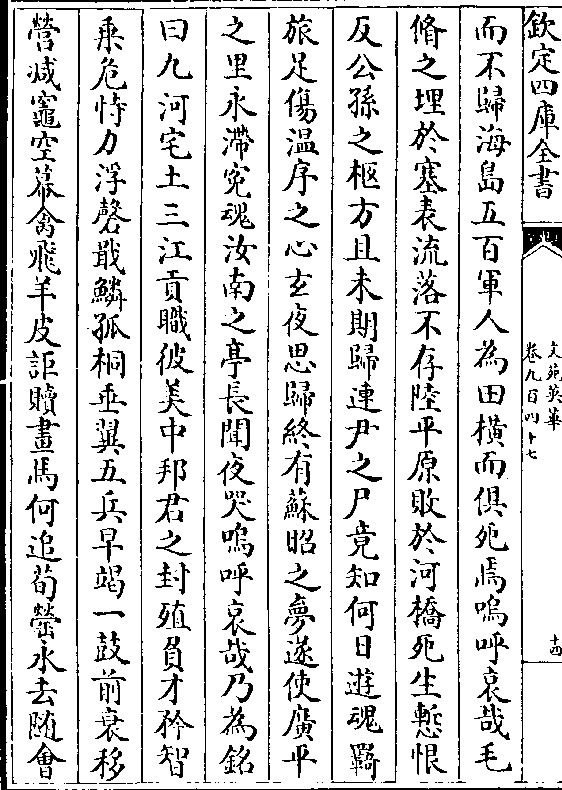 欽定四庫全書
文苑英華
卷九百四十七
十四
而不歸海島五百軍人為田横而俱死焉嗚呼哀哉毛
脩之埋於塞表流落不存陸平原敗於河橋死生慙恨
反公孫之柩方且未期歸連尹之尸竟知何日遊魂羇
旅足傷温序之心𤣥夜思歸終有蘇昭之夢遂使廣平
之里永滯寃魂汝南之亭長聞夜哭嗚呼哀哉乃為銘
曰九河宅土三江貢職彼美中邦君之封殖負才矜智
乗危恃力浮磬戢鱗孤桐垂翼五兵早竭一鼓前衰移
營减竈空幕禽飛羊皮詎贖畫馬何追荀罃永去随㑹